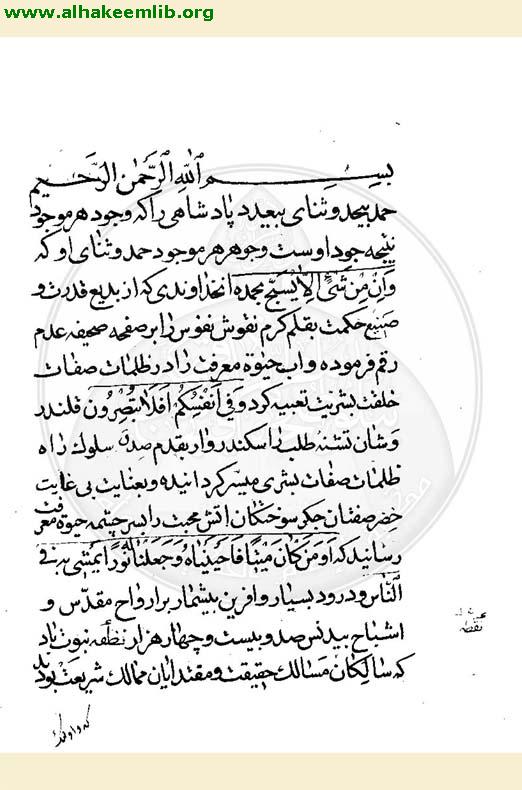 www.alhakeemlib.org
بسم الله الرحمن الرحيم
حمد بیحد و ثنای بیعدد پادشاهی را که وجود هر موجود
نتیجه جود اوست و جوهر هر موجود حمد و ثنای او که
وان من شئ الا یسبح بحمده انخداوندی که از بدیع قدرت و
صنیع حکمت بقلم کرم نقوش نفوس را بر صفحه صحیفه عدم
رقم فرموده و اب حیوة معرفت را در ظلمات صفات
خلقت بشریت تعبیه کرد و فی انفسکم افلا تبصرون قلندر
وشان تشنه طلب را سکندر وار بقدم صدق سلوک راه
ظلمات صفات بشری میسر کردانیده و بعنایت بی غایت
خضر صفتان جکر سوختکان اتش محبت را بسر چشمه حیوة معرفت
رسانید که او من کان میتا فاحییناه و جعلنا له نورا یمشی به فی
الناس و درود بسیار و افرین بیشمار بر ارواح مقدس و
اشباح بیدنس صد و بیست و چهار هزار نقطه نبوت باد
که سالکان مسالک حقیقت و مقتدایان ممالک شریعت بودند
نقطه